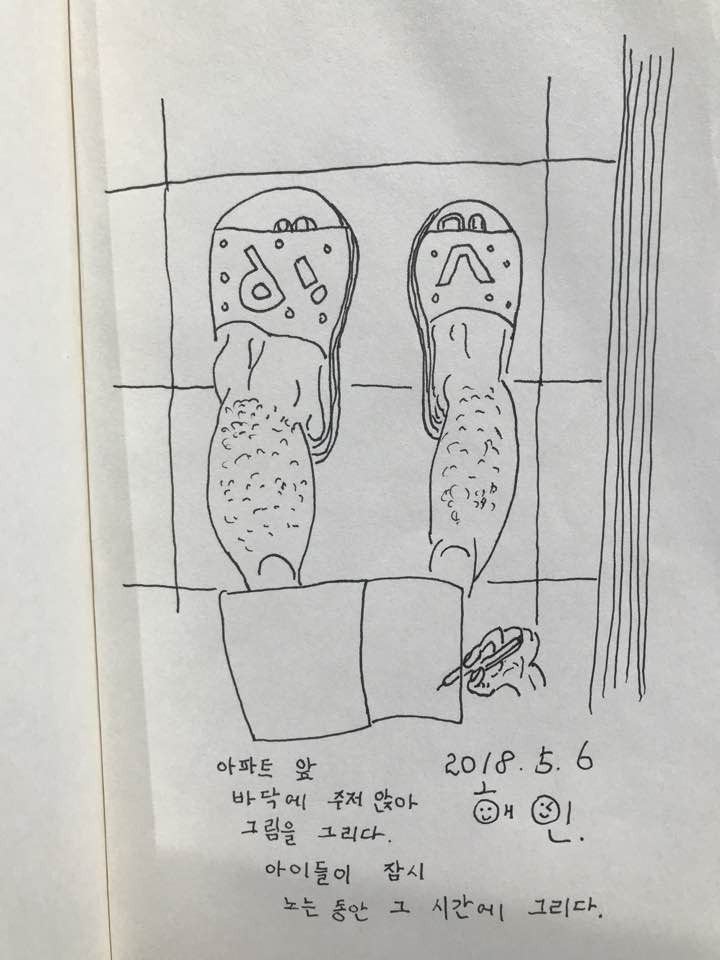 아파트 앞
바닥에 주저 앉아
그림을 그리다.
아이들이 잠시
노는 동안 그 시간에 그리다.
2018.5.6
해인.